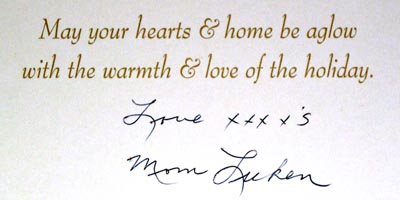 May your hearts & home be aglow
with the warmth & love of the holiday.
Love xxxx's
Mom Luken